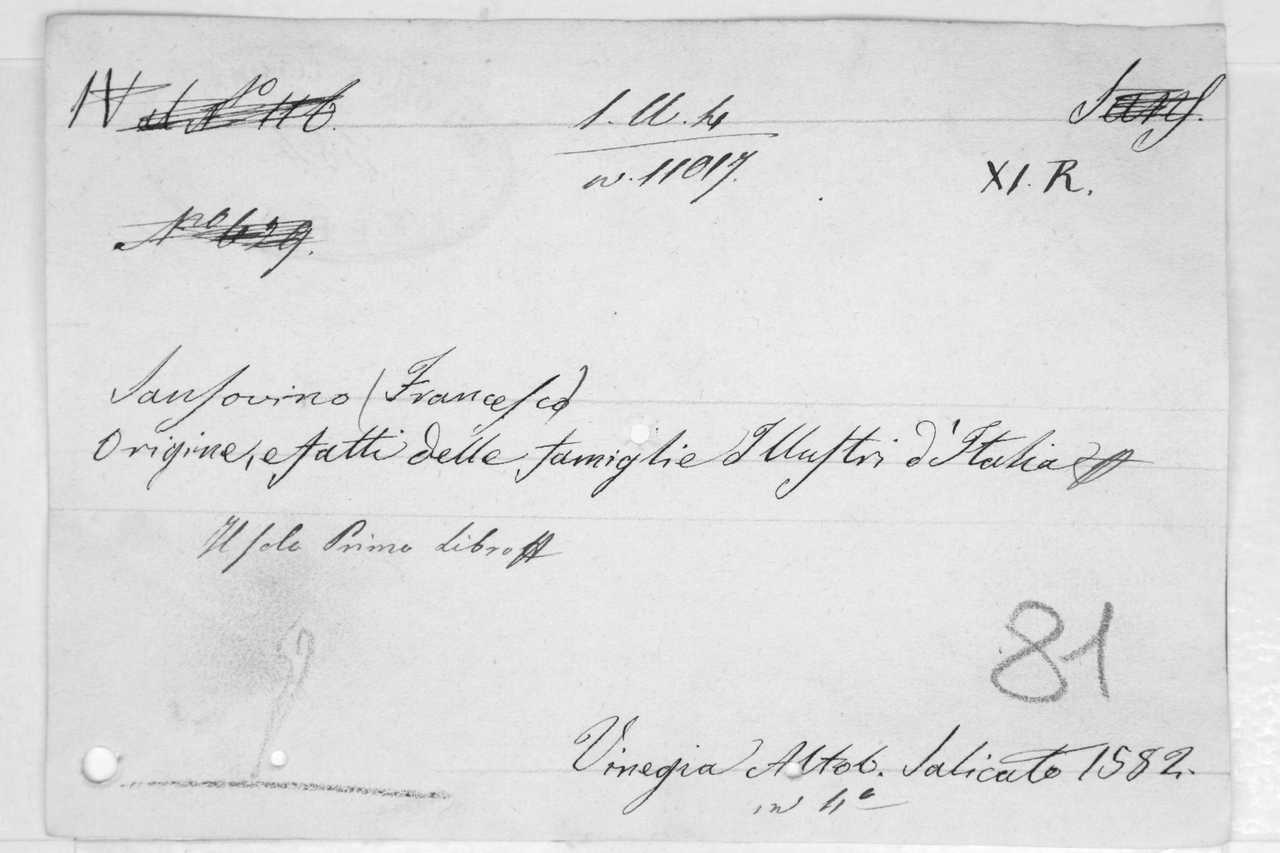 IV
1. U. 4
n. 11017.
XI. R.
Nro 629.
Sansovino (Francesco)
Origine, e fatti delle famiglie Illustri d'Italia
Il solo Primo Libro
81
Vinegia Altob. Salicato 1582.
in 4o